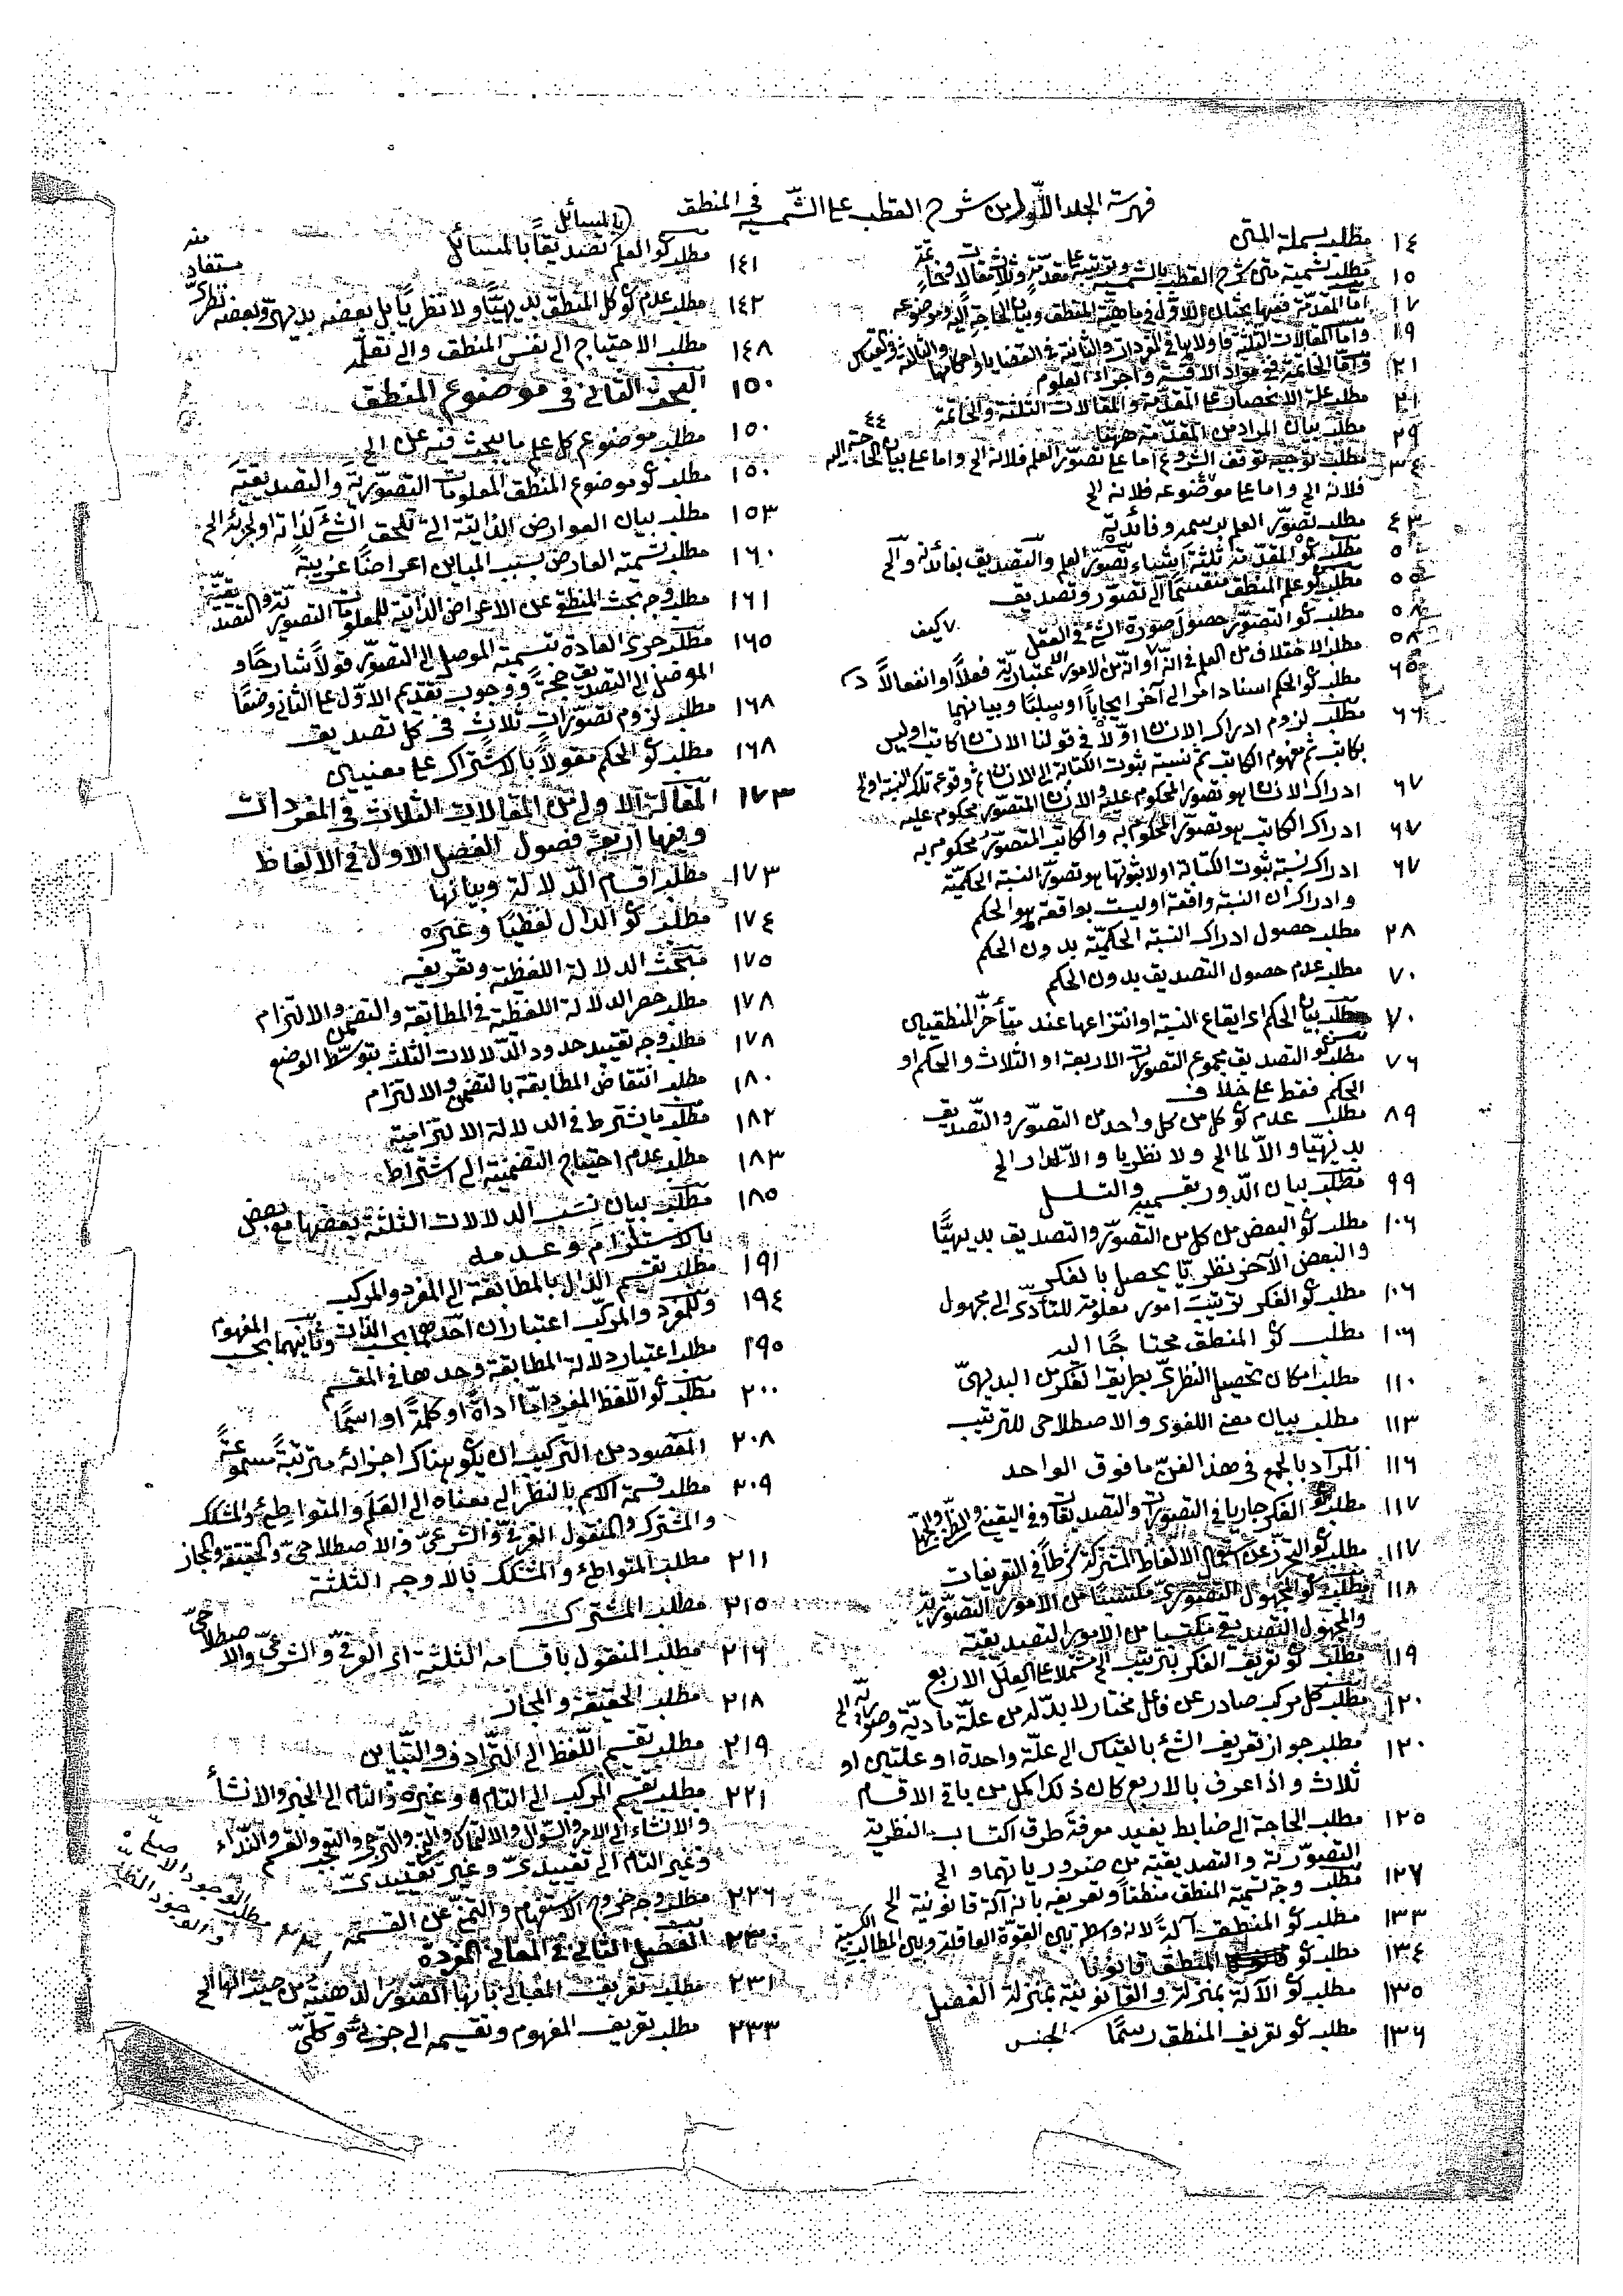 فهرسة الجلد الأول من شرح القطب على الشمسية في المنطق
١٤ مطلب بسملة المتن
١٥ مطلب تسمية متن شرح القطب بالشمسية وترتيبه على مقدمة وثلاث مقالات وخاتمة
١٧ أما المقدمة ففيها بحثان الأول في ماهية المنطق وبيان الحاجة إليه وموضوعه
١٩ وأما المقالات الثلثة فأولاها في المفردات والثانية في القضايا وأحكامها والثالثة في القياس
٢١ وأما الخاتمة ففي مواد الأقيسة وأجزاء العلوم
٢١ مطلب علة الانحصار على المقدمة والمقالات الثلثة والخاتمة
٢٩ مطلب بيان المراد من المقدمة ههنا
٣٤ مطلب توجيه توقف الشروع اما على تصور العلم فلانه الخ واما على بيان الحاجة اليه ٤٤
فلانه الخ واما على موضوعه فلانه الخ
٤٣ مطلب تصور العلم برسمه وفائدته
٥٠ مطلب كون المقدمة ثلثة أشياء تصور العلم والتصديق بفائدته والخ
٥٥ مطلب كون علم المنطق منقسما الى تصور وتصديق
٥٨ مطلب كون التصور حصول صورة الشئ في العقل
٥٨ مطلب الاختلاف من العلم في انه او انه من الامور الاعتبارية فعلًا او انفعالًا او كيف
٦٥ مطلب كون الحكم اسناد امر الى آخر ايجابا او سلبًا وبيانهما
٦٦ مطلب لزوم ادراك الانسان اولًا في قولنا الانسان كاتب او ليس
بكاتب ثم مفهوم الكاتب ثم نسبة ثبوت الكتابة الى الانسان ثم وقوع تلك النسبة اولا
٦٧ ادراك الانسان هو تصور المحكوم عليه والانسان المتصور محكوم عليه
٦٧ ادراك الكاتب هو تصور المحكوم به والكاتب المتصور محكوم به
٦٧ ادراك نسبة ثبوت الكتابة اولا ثبوتها هو تصور النسبة الحكمية
وادراك ان النسبة واقعة او ليست بواقعة هو الحكم
٢٨ مطلب حصول ادراك النسبة الحكمية بدون الحكم
٧٠ مطلب عدم حصول التصديق بدون الحكم
٧٠ مطلب بيان الحكم اى ايقاع النسبة او انتزاعها عند متأخر المنطقيين
٧٦ مطلب كون التصديق مجموع التصورات الاربعة او الثلاث والحكم او
الحكم فقط على خلاف
٨٩ مطلب عدم كون كل من كل واحد من التصور والتصديق
بديهيًا والا لما الخ ولا نظريا والا لدار الخ
٩٩ مطلب بيان الدور بقسميه والتسلسل
١٠٦ مطلب كون البعض من كل من التصور والتصديق بديهيًا
والبعض الآخر نظريًا يحصل بالفكر
١٠٦ مطلب كون الفكر ترتيب امور معلومة للتأدى الى مجهول
١٠٦ مطلب كون المنطق محتاجًا اليه
١١٠ مطلب امكان تحصيل النظرى بطريق الفكر من البديهى
١١٣ مطلب بيان معنى اللغوى والاصطلاحى للترتيب
١١٦ المراد بالجمع في هذا الفن ما فوق الواحد
١١٧ مطلب كون الفكر جاريا في التصورات والتصديقات وفي اليقينى والظنى والجهل
١١٧ مطلب كون التحرز عن استعمال الالفاظ المشتركة شرطًا في التعريفات
١١٨ مطلب كون المجهول التصورى مكتسبًا من الامور التصورية
والمجهول التصديقى مكتسبا من الامور التصديقية
١١٩ مطلب كون تعريف الفكر بترتيب الخ مشتملا على العلل الاربع
١٢٠ مطلب كل مركب صادر عن فاعل مختار لا بد له من علة مادية وصورية الخ
١٢٠ مطلب جواز تعريف الشئ بالقياس الى علة واحدة او علتين او
ثلاث واذا عرف بالاربع كان ذلك اكمل من باقى الاقسام
١٢٥ مطلب الحاجة الى ضابط يفيد معرفة طرق اكتساب النظرية
التصورية والتصديقية من ضرورياتهما و الخ
١٢٧ مطلب وجه تسمية المنطق منطقا وتعريفه بانه آلة قانونية الخ
١٣٣ مطلب كون المنطق آلة لانه واسطة بين القوة العاقلة وبين المطالب الكسبية
١٣٤ مطلب كون المنطق قانونا
١٣٥ مطلب كون الآلة بمنزلة الجنس والقانونية بمنزلة الفصل
١٣٦ مطلب كون تعريف المنطق رسمًا
١٤١ مطلب كون العلم بالمسائل تصديقًا بالمسائل
١٤٢ مطلب عدم كون كل المنطق بديهيًا ولا نظريًا بل بعضه بديهى وبعضه نظرى مستفاد منه
١٤٨ مطلب الاحتياج الى نفس المنطق والى تعلمه
١٥٠ البحث الثانى في موضوع المنطق
١٥٠ مطلب موضوع كل علم ما يبحث فيه عن الخ
١٥٠ مطلب كون موضوع المنطق المعلومات التصورية والتصديقية
١٥٣ مطلب بيان العوارض الذاتية التى تلحق الشئ لذاته او لجزئه الخ
١٦٠ مطلب تسمية العارض بسبب المباين اعراضًا غريبة
١٦١ مطلب وجه بحث المنطقى عن الاعراض الذاتية للمعلومات التصورية والتصديقية
١٦٥ مطلب جرى العادة تسمية الموصل الى التصور قولًا شارحًا و
الموصل الى التصديق حجة ووجوب تقديم الاول على الثانى وضعًا
١٦٨ مطلب لزوم تصورات ثلاث في كل تصديق
١٦٨ مطلب كون الحكم مقولًا بالاشتراك على معنيين
١٧٣ المقالة الاولى من المقالات الثلاث في المفردات
وفيها اربعة فصول الفصل الاول في الالفاظ
١٧٣ مطلب اقسام الدلالة وبيانها
١٧٤ مطلب كون الدال لفظيًا وغيره
١٧٥ مبحث الدلالة اللفظية وتعريفه
١٧٨ مطلب حصر الدلالة اللفظية في المطابقة والتضمن والالتزام
١٧٨ مطلب وجه تقييد حدود الدلالات الثلث بتوسط الوضع
١٨٠ مطلب انتقاض المطابقة بالتضمن والالتزام
١٨٢ مطلب ما يشترط في الدلالة الالتزامية
١٨٣ مطلب عدم احتياج التضمنية الى اشتراط
١٨٥ مطلب بيان نسب الدلالات الثلثة بعضها مع بعض
بالاستلزام وعدمه
١٩١ مطلب تقسيم الدال بالمطابقة الى المفرد والمركب
١٩٤ وللمفرد والمركب اعتباران احدهما بحسب الذات وثانيهما بحسب المفهوم
١٩٥ مطلب اعتبار دلالة المطابقة وحدها في المقسم
٢٠٠ مطلب كون اللفظ المفرد اما اداةً او كلمةً او اسمًا
٢٠٨ المقصود من التركيب ان يكون هناك اجزاء مترتبة مسموعة
٢٠٩ مطلب قسمة الاسم بالنظر الى معناه الى العلم والمتواطئ والمشكك
والمشترك والمنقول العرفى والشرعى والاصطلاحى والحقيقة والمجاز
٢١١ مطلب المتواطئ والمشكك بالاوجه الثلثة
٢١٥ مطلب المشترك
٢١٦ مطلب المنقول باقسامه الثلثة اى العرفى والشرعى والاصطلاحى
٢١٨ مطلب الحقيقة والمجاز
٢١٩ مطلب تقسيم اللفظ الى الترادف والتباين
٢٢١ مطلب تقسيم المركب الى التام وغيره والتام الى الخبر والانشاء
والانشاء الى الامر والسؤال والالتماس والتمنى والترجى والتعجب والقسم والنداء
وغير التام الى تقييدى وغير تقييدى
٢٢٦ مطلب وجه خروج الاستفهام والتمنى عن القسمة
٢٣٠ الفصل الثانى في المعانى المفردة
٢٣١ مطلب تعريف المعانى بانها الصور الذهنية من حيث انها الخ
٢٣٣ مطلب تعريف المفهوم وتقسيمه الى جزئى وكلى
مطلب الوجود الاصلى
والوجود الظلى